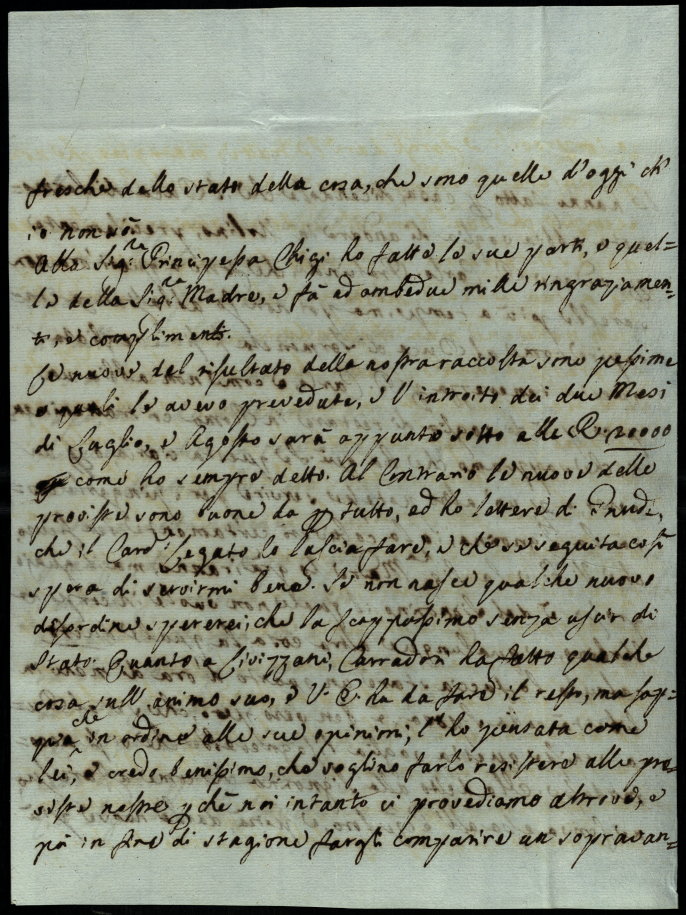 fresche dello stato della cosa, che sono quelle d'oggi ch'
io non sò.
Alla Sig.ra Principessa Chigi ho fatto le sue parti, e quel=
le della Sig.ra Madre, e fà ed ambedue mille ringraziamen=
ti, e complimenti.
Le nuove del risultato della nostra raccolta sono pessime
e quali le avevo prevedute, e l'introito dei due Mesi
di Luglio, e Agosto sarà appunto sotto alle R. 20000
come ho sempre detto. Al Contrario le nuove delle
proviste sono buone da p tutto, ed ho lettere di Gnudi,
che il Card. Legato lo lascia fare, e che se seguita così
spera di servirmi bene. Se non nasce qualche nuovo
disordine spererei, che la scappassimo senza uscir di
Stato. Quanto a Civizzani, Carradori ha fatto qualche
cosa sull'animo suo, e V. E. ha da fare il resto, ma sap=
pia che in ordine alle sue opinioni, l' ho pensata come
lei, e credo benissimo, che voglino farlo resistere alle pro=
viste nostre pchè noi intanto ci provediamo altrove, e
poi in fine di stagione fargli comparire un sopravan=